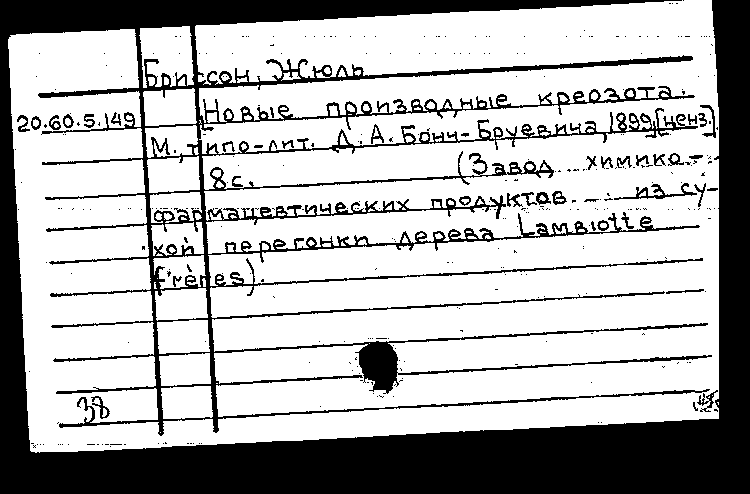 Бриссон, Жюль
20.60.5.149 Новые производные креозота.
М., типо-лит. Д. А. Бонч-Бруевича, 1899 [ценз.].
8 с. (Завод химико-
фармацевтических продуктов... из су-
хой перегонки дерева Lambiotte
frères).
38